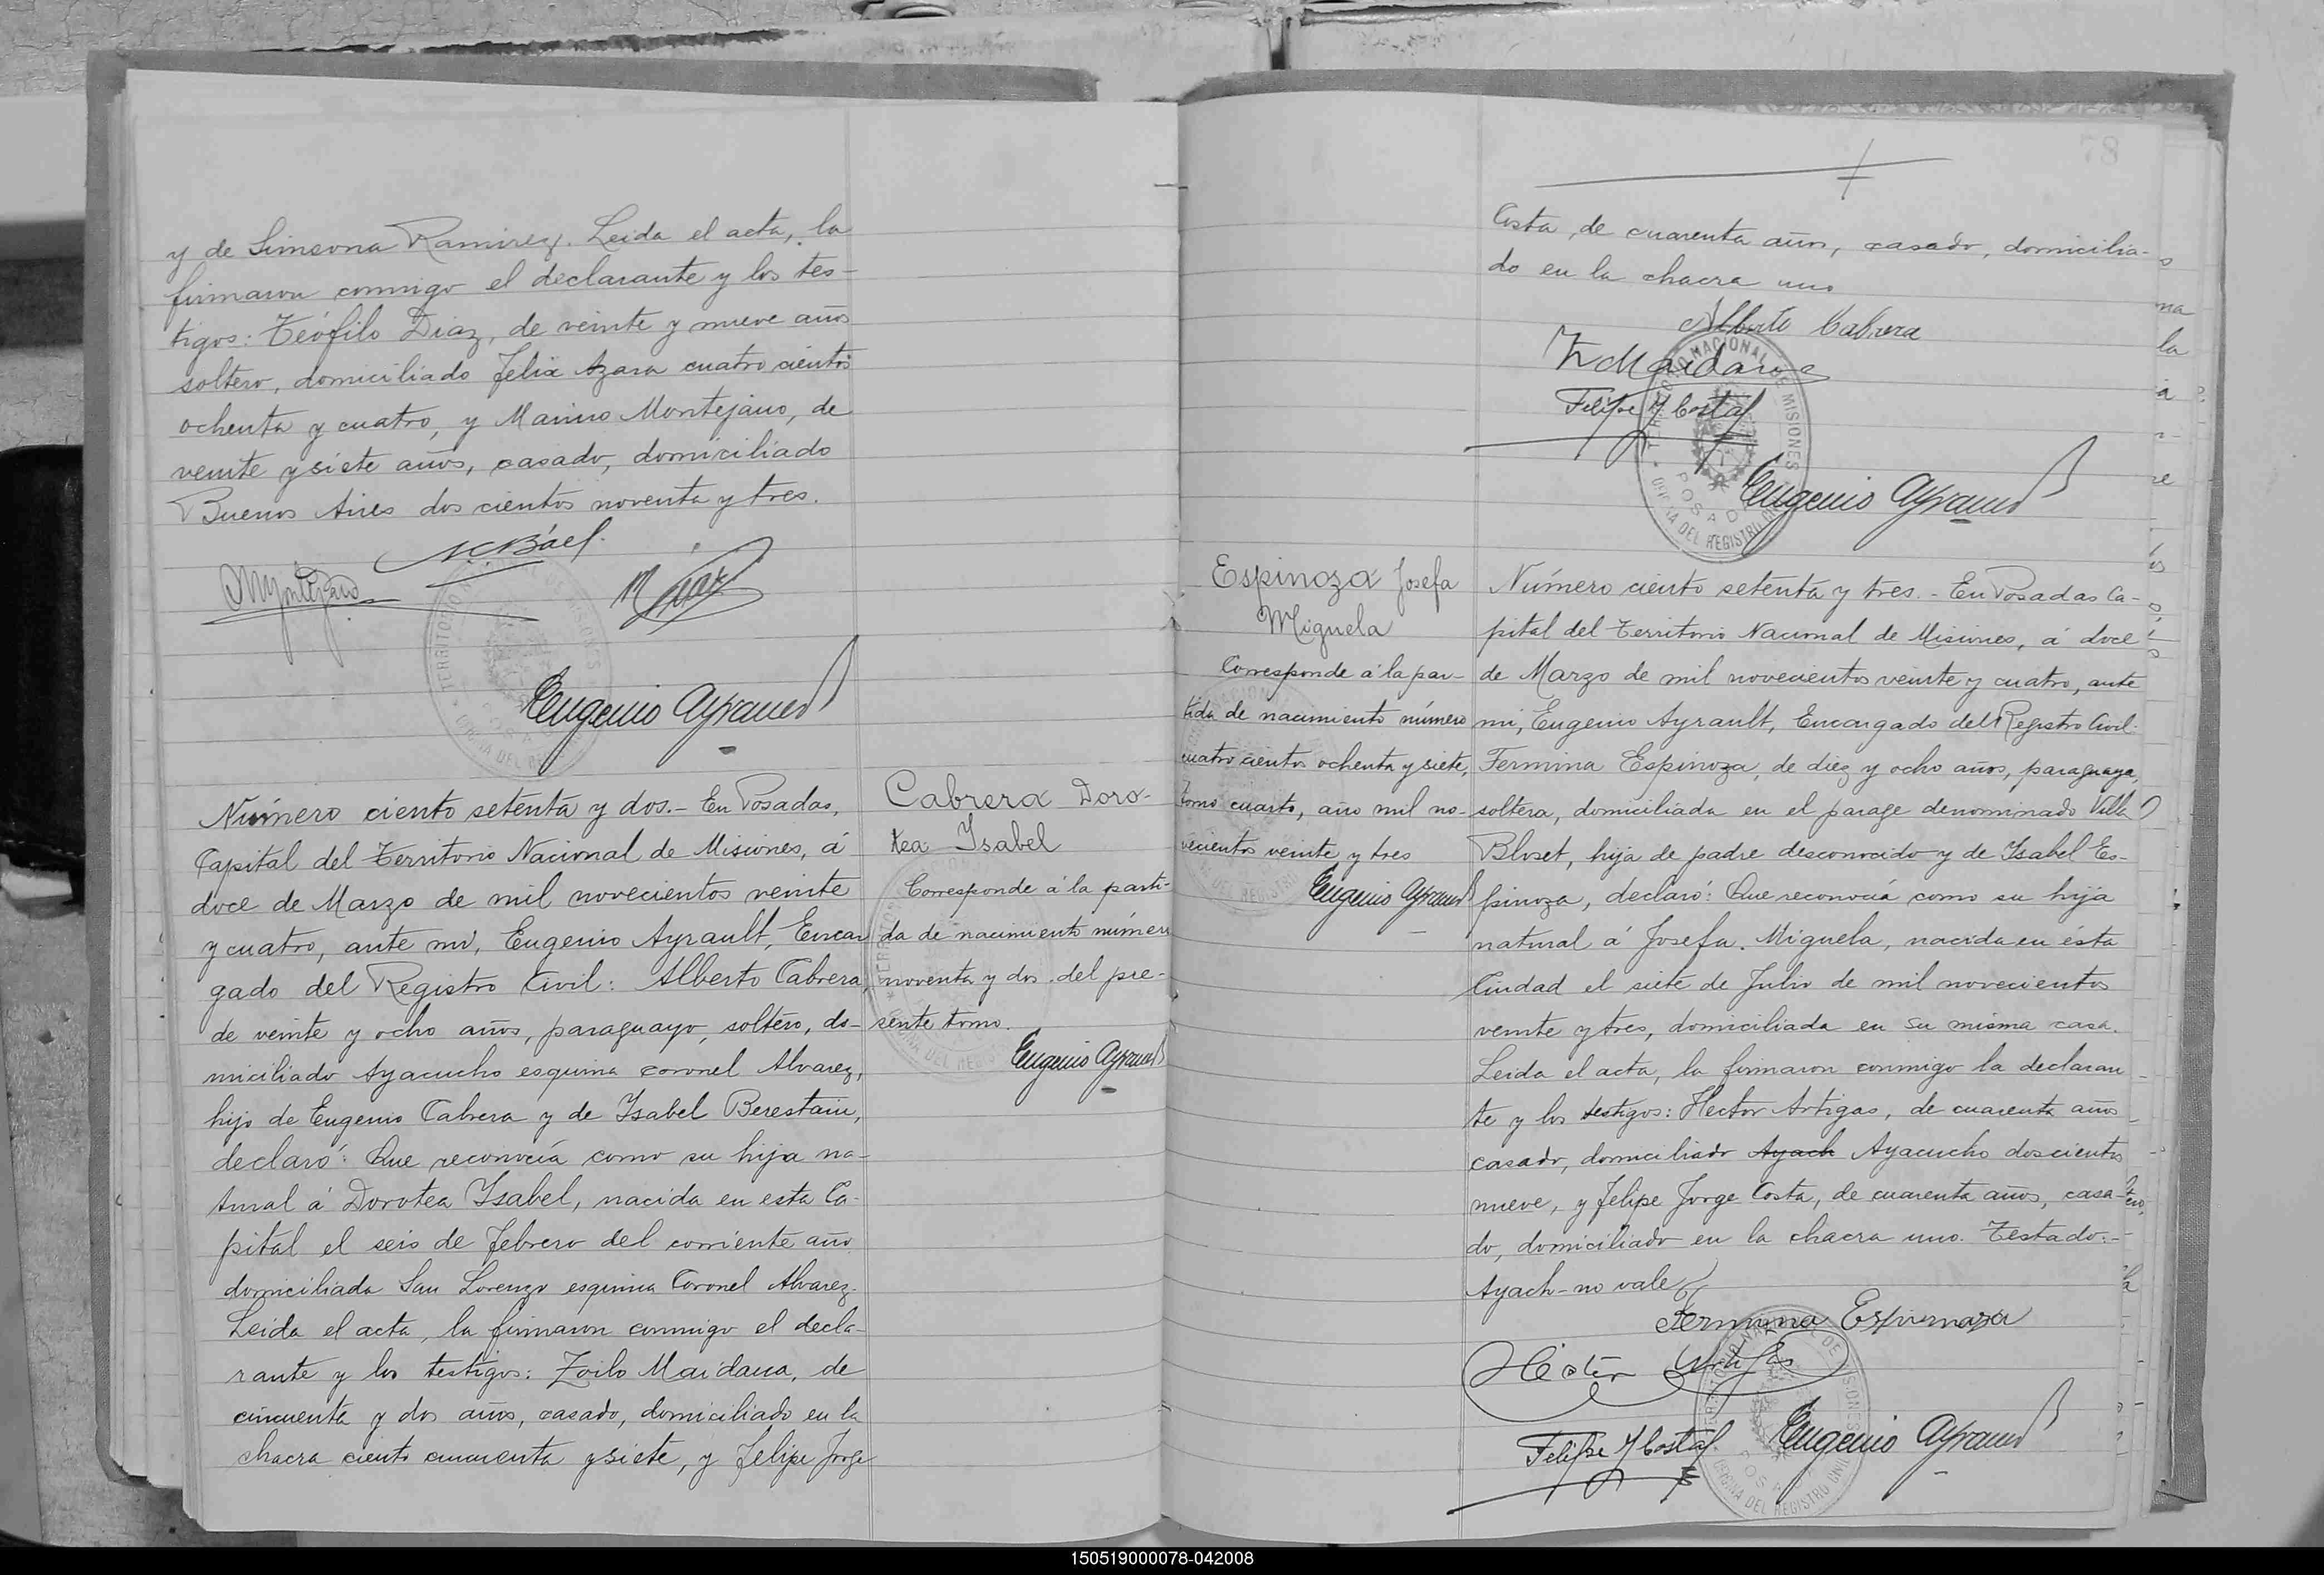 y de Simeona Ramirez. Leida el acta, la
firmaron conmigo el declarante y los tes-
tigos: Teófilo Diaz, de veinte y nueve años
soltero, domiciliado Felix Azara cuatro cientos
ochenta y cuatro, y Marino Montejano, de
veinte y siete años, casado, domiciliado
Buenos Aires dos cientos noventa y tres.
Eugenio Ayrault
Número ciento setenta y dos.- En Posadas,
Capital del Territorio Nacional de Misiones, á
doce de Marzo de mil novecientos veinte
y cuatro, ante mi, Eugenio Ayrault, Encar
gado del Registro Civil: Alberto Cabrera,
de veinte y ocho años, paraguayo, soltero, do-
miciliado Ayacucho esquina coronel Alvarez,
hijo de Eugenio Cabrera y de Ysabel Berestain,
declaró: Que reconocía como su hija na-
tural á Dorotea Ysabel, nacida en esta Ca-
pital el seis de Febrero del corriente año
domiciliada San Lorenzo esquina Coronel Alvarez.
Leida el acta, la firmaron conmigo el decla-
rante y los testigos: Zoilo Maidana, de
cincuenta y dos años, casado, domiciliado en la
chacra ciento cincuenta y siete, y Felipe Jorge
Cabrera Doro-
tea Ysabel
Corresponde á la parti-
da de nacimiento número
noventa y dos del pre-
sente tomo.
Eugenio Ayrault
78
Costa, de cuarenta años, casado, domicilia-
do en la chacra uno
Alberto Cabrera
Z Maidana
Felipe J Costa
TERRITORIO NACIONAL DE MISIONES
POSADAS
OFICINA DEL REGISTRO CIVIL
Eugenio Ayrault
Espinoza Josefa
Miguela
Corresponde á la par-
tida de nacimiento número
cuatro cientos ochenta y siete,
tomo cuarto, año mil no-
vecientos veinte y tres
Eugenio Ayrault
Número ciento setenta y tres.- En Posadas Ca-
pital del Territorio Nacional de Misiones, á doce
de Marzo de mil novecientos veinte y cuatro, ante
mi, Eugenio Ayrault, Encargado del Registro Civil:
Fermina Espinoza, de diez y ocho años, paraguaya,
soltera, domiciliada en el parage denominado Villa
Bloset, hija de padre desconocido y de Ysabel Es-
pinoza, declaró: Que reconocía como su hija
natural á Josefa Miguela, nacida en ésta
Ciudad el siete de Julio de mil novecientos
veinte y tres, domiciliada en su misma casa.
Leida el acta, la firmaron conmigo la declaran
te y los testigos: Hector Artigas, de cuarenta años
casado, domiciliado Ayach Ayacucho doscientos
nueve, y Felipe Jorge Costa, de cuarenta años, casa-
do, domiciliado en la chacra uno. Testado:-
Ayach-no vale
Fermina Espinoza
Héctor Artigas
Felipe J Costa
Eugenio Ayrault
150519000078-042008